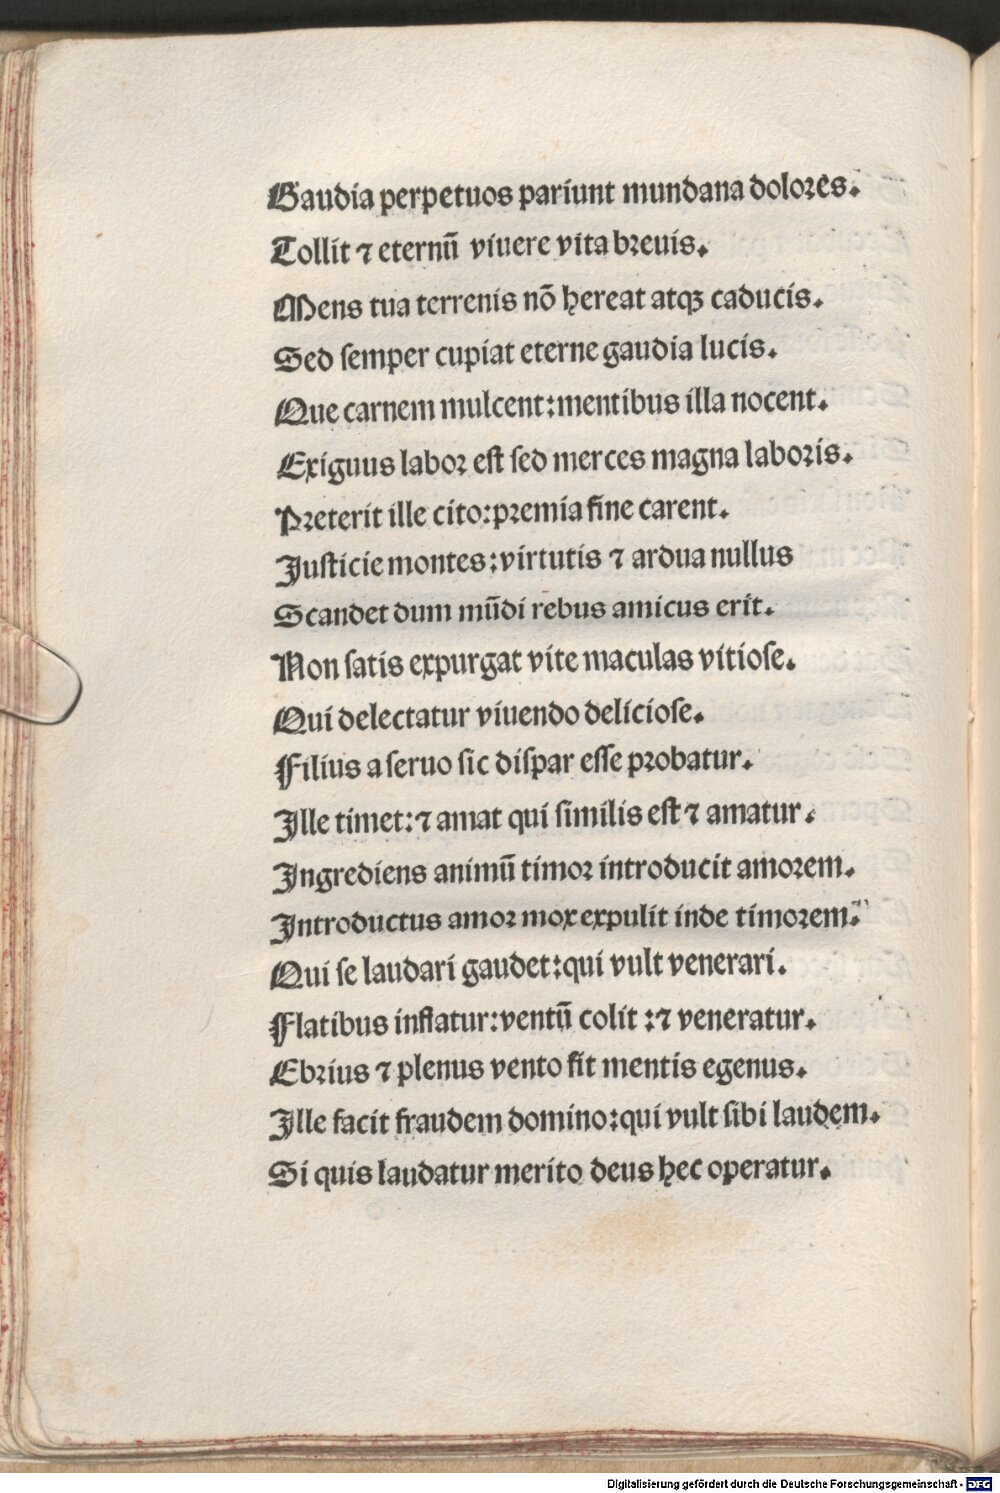 Gaudia perpetuos pariunt mundana dolores.
Tollit ⁊ eternū viuere vita breuis.
Mens tua terrenis nō hereat atqꝫ caducis.
Sed semper cupiat eterne gaudia lucis.
Que carnem mulcent:mentibus illa nocent.
Exiguus labor est sed merces magna laboris.
Preterit ille cito:premia fine carent.
Justicie montes:virtutis ⁊ ardua nullus
Scandet dum mūdi rebus amicus erit.
Non satis expurgat vite maculas vitiose.
Qui delectatur viuendo deliciose.
Filius a seruo sic dispar esse probatur.
Ille timet:⁊ amat qui similis est ⁊ amatur.
Ingrediens animū timor introducit amorem.
Introductus amor mox expulit inde timorem.
Qui se laudari gaudet:qui vult venerari.
Flatibus inflatur:ventū colit :⁊ veneratur.
Ebrius ⁊ plenus vento fit mentis egenus.
Ille facit fraudem domino:qui vult sibi laudem.
Si quis laudatur merito deus hec operatur.
Digitalisierung gefördert durch die Deutsche Forschungsgemeinschaft - DFG